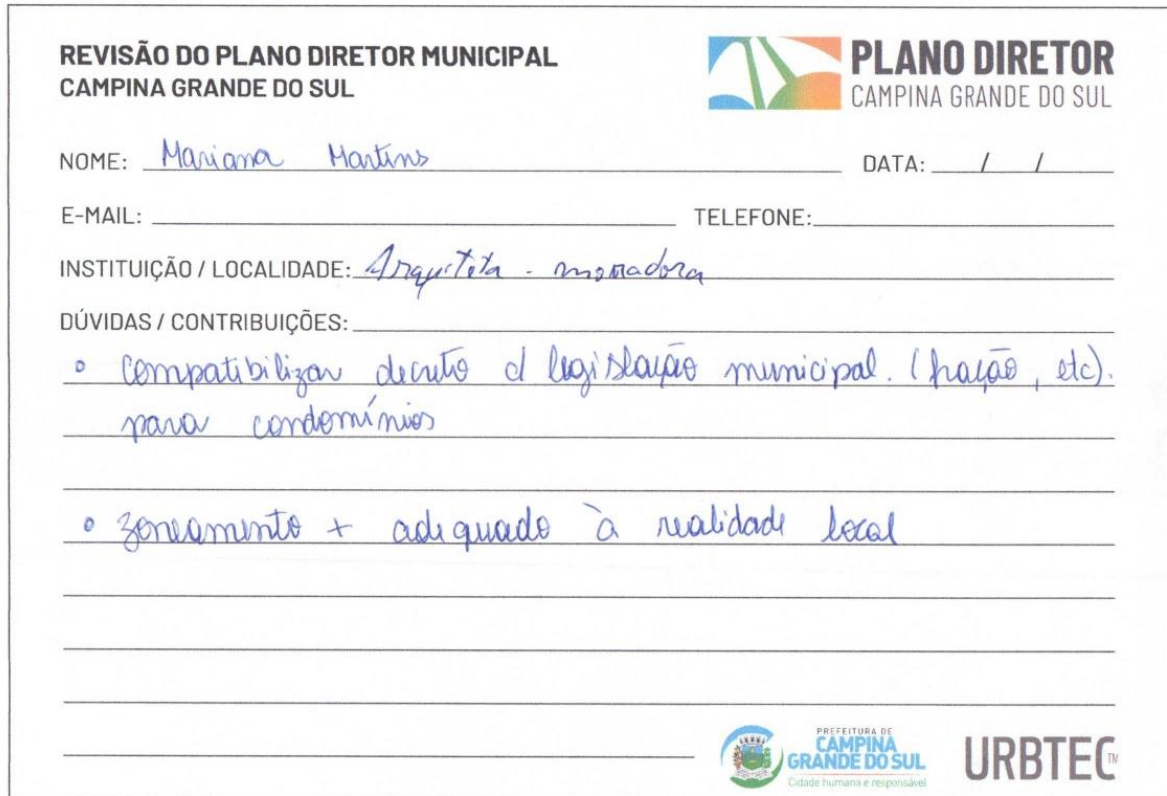 REVISÃO DO PLANO DIRETOR MUNICIPAL
CAMPINA GRANDE DO SUL
PLANO DIRETOR
CAMPINA GRANDE DO SUL
NOME: Mariana Martins DATA: / /
E-MAIL: TELEFONE:
INSTITUIÇÃO / LOCALIDADE: Arquiteta - moradora
DÚVIDAS / CONTRIBUIÇÕES:
• compatibilizar decreto d legislação municipal. (fração, etc).
para condomínios
• zoneamento + adequado à realidade local
PREFEITURA DE
CAMPINA
GRANDE DO SUL
Cidade humana e responsável
URBTEC TM